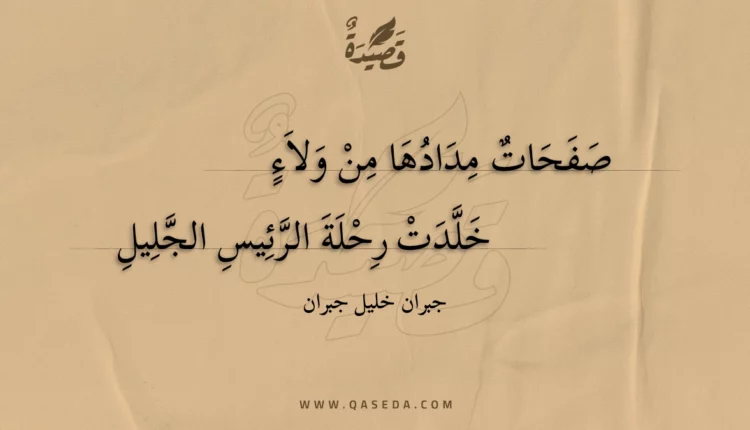 قصيدة
صَفَحَاتٌ مِدَادُهَا مِنْ وَلاَءٍ
خَلَّدَتْ رِحْلَةَ الرَّئِيسِ الجَّلِيلِ
جبران خليل جبران
WWW.QASEDA.COM